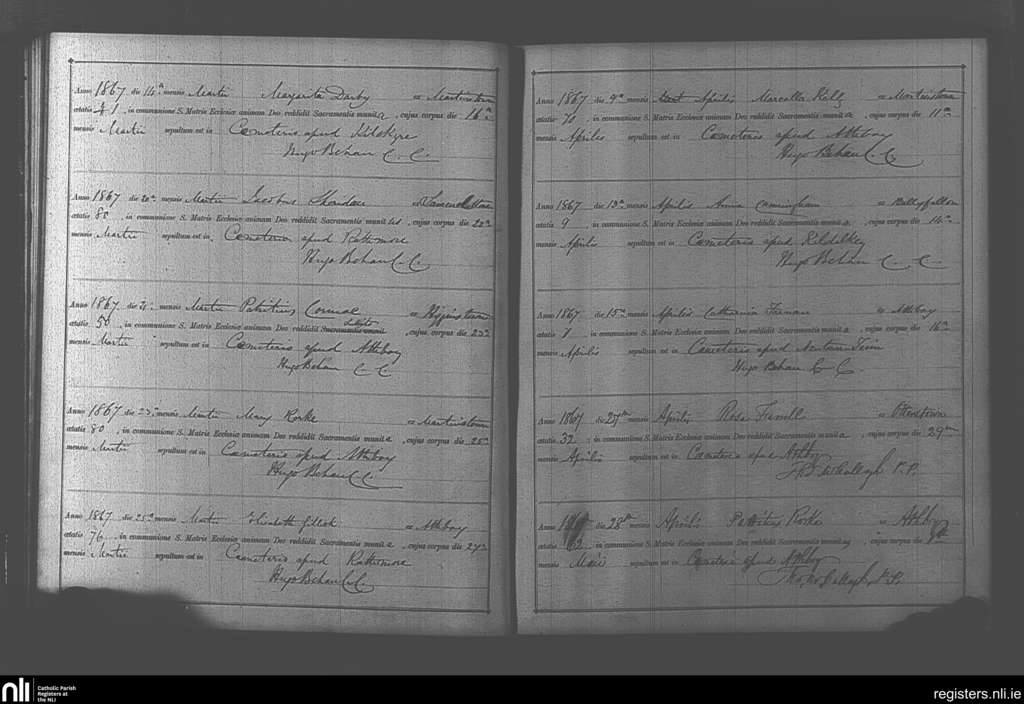 Anno 1867 die 14a mensis Martii Margarita Darby ex Martinstown
ætatis 41, in communione S. Matris Ecclesiæ animam Deo reddidit Sacramentis munita, cujus corpus die 16a
mensis Martii sepultum est in Cemeterio apud Kilskyre
Hugo Behan C. C.
Anno 1867 die 20a mensis Martii Jacobus Sheridan ex
ætatis 80, in communione S. Matris Ecclesiæ animam Deo reddidit Sacramentis munitus, cujus corpus die 22a
mensis Martii sepultum est in Cemeterio apud Rathmore
Hugo Behan C. C.
Anno 1867 die mensis Martii Patritius Cormac ex Higginstown
ætatis 50, in communione S. Matris Ecclesiæ animam Deo reddidit Sacramentis munit, cujus corpus die 23a
mensis Martii sepultum est in Cemeterio apud Athboy
Hugo Behan C. C.
Anno 1867 die 23a mensis Martii Mary Rorke ex Martinstown
ætatis 80, in communione S. Matris Ecclesiæ animam Deo reddidit Sacramentis munita, cujus corpus die 25a
mensis Martii sepultum est in Cemeterio apud Athboy
Hugo Behan C. C.
Anno 1867 die 25a mensis Martii Elisabeth ex Athboy
ætatis 76, in communione S. Matris Ecclesiæ animam Deo reddidit Sacramentis munita, cujus corpus die 27a
mensis Martii sepultum est in Cemeterio apud Rathmore
Hugo Behan C. C.
Anno 1867 die 9a mensis Aprilis Marcella Kelly ex Martinstown
ætatis 70, in communione S. Matris Ecclesiæ animam Deo reddidit Sacramentis munita, cujus corpus die 11a
mensis Aprilis sepultum est in Cemeterio apud Athboy
Hugo Behan C. C.
Anno 1867 die 13a mensis Aprilis Anna Cunningham ex Ballyfallon
ætatis 9, in communione S. Matris Ecclesiæ animam Deo reddidit Sacramentis munita, cujus corpus die 14a
mensis Aprilis sepultum est in Cemeterio apud Kildalkey
Hugo Behan C. C.
Anno 1867 die 15a mensis Aprilis Catherina ex Athboy
ætatis 7, in communione S. Matris Ecclesiæ animam Deo reddidit Sacramentis munita, cujus corpus die 16a
mensis Aprilis sepultum est in Cemeterio apud
Hugo Behan C. C.
Anno 1867 die 27th mensis Aprilis Rosa Farrell ex Otterstown
ætatis 32, in communione S. Matris Ecclesiæ animam Deo reddidit Sacramentis munita, cujus corpus die 29
mensis Aprilis sepultum est in Cemeterio apud Athboy
McCullagh P. P.
Anno die 28th mensis Aprilis Patritius Rorke ex Athboy
ætatis 62, in communione S. Matris Ecclesiæ animam Deo reddidit Sacramentis munit, cujus corpus die
mensis Maii sepultum est in Cemeterio apud Athboy
McCullagh P. P.
nli Catholic Parish
Registers at
the NLI
registers.nli.ie